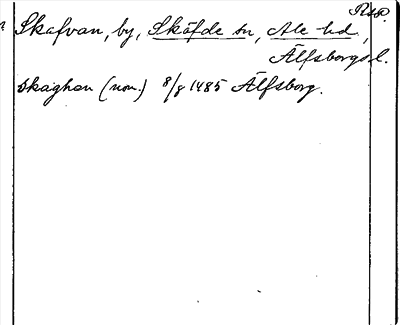 Rap.
Skafvan, by, Sköfde sn, Ale hd,
Älfsborgs l.
Skaghan (nom.) 8/8 1485 Älfsborg.